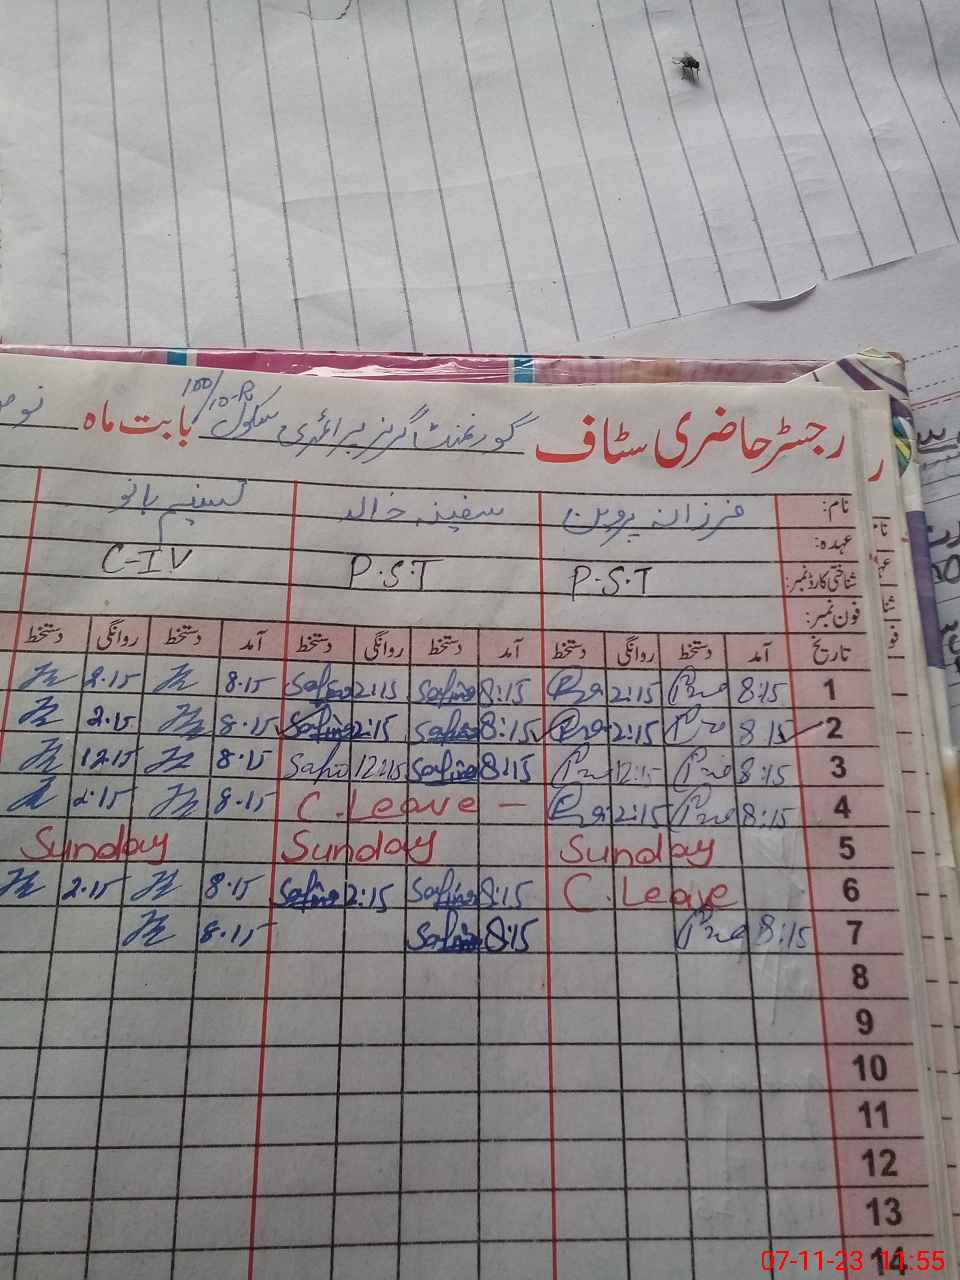 رجسٹر حاضری سٹاف گورنمنٹ گرلز پرائمری سکول 100/10-R بابت ماہ
نام: فرزانہ پروین سفینہ خالد تسنیم بانو
عہدہ: P.S.T P.S.T C-IV
شناختی کارڈ نمبر:
فون نمبر:
تاریخ آمد دستخط روانگی دستخط آمد دستخط روانگی دستخط آمد دستخط روانگی دستخط
1 8:15 2:15 8:15 Safina 2:15 Safina 8.15 2.15
2 8:15 2:15 8:15 Safina 2:15 Safina 8.15 2.15
3 8:15 12:15 8:15 Safina 12:15 Safina 8.15 12.15
4 8:15 2:15 C.Leave – 8.15 2.15
5 Sunday Sunday Sunday
6 C.Leave 8:15 Safina 2:15 Safina 8.15 2.15
7 8:15 8:15 Safina 8.15
8
9
10
11
12
13
14
07-11-23 11:55